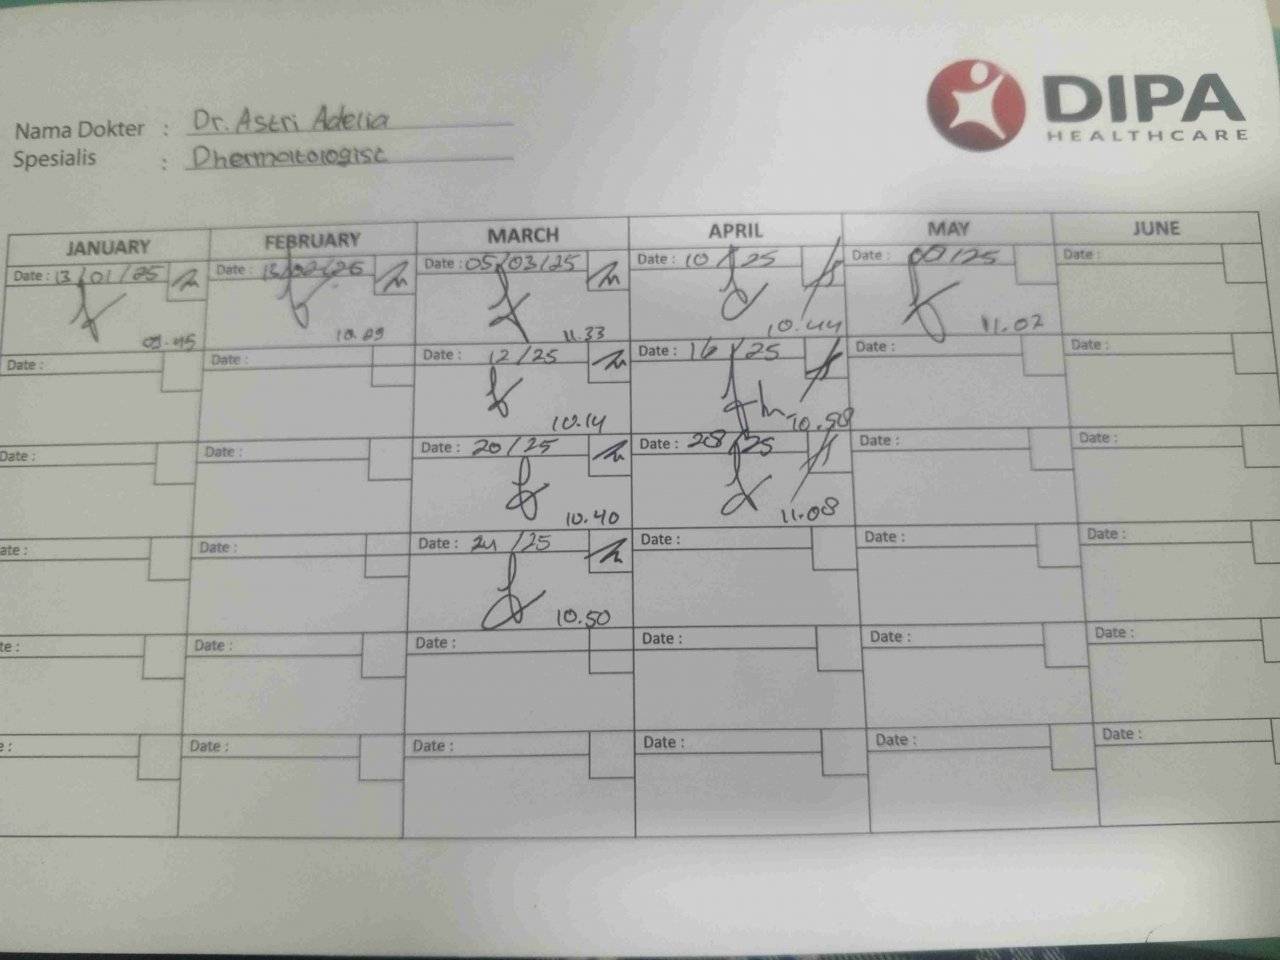 DIPA
HEALTHCARE
Nama Dokter : Dr. Astri Adelia
Spesialis : Dhermatologist
JANUARY FEBRUARY MARCH APRIL MAY JUNE
Date : 13/01/25 Date : 13/02/25 Date : 05/03/25 Date : 10/25 Date : /25 Date :
09.45 10.09 11.33 10.44 11.02
Date : Date : Date : 12/25 Date : 16/25 Date : Date :
10.14 10.58
Date : Date : Date : 20/25 Date : 28/25 Date : Date :
10.40 11.08
ate : Date : Date : 24/25 Date : Date : Date :
10.50
te : Date : Date : Date : Date : Date :
e : Date : Date : Date : Date : Date :